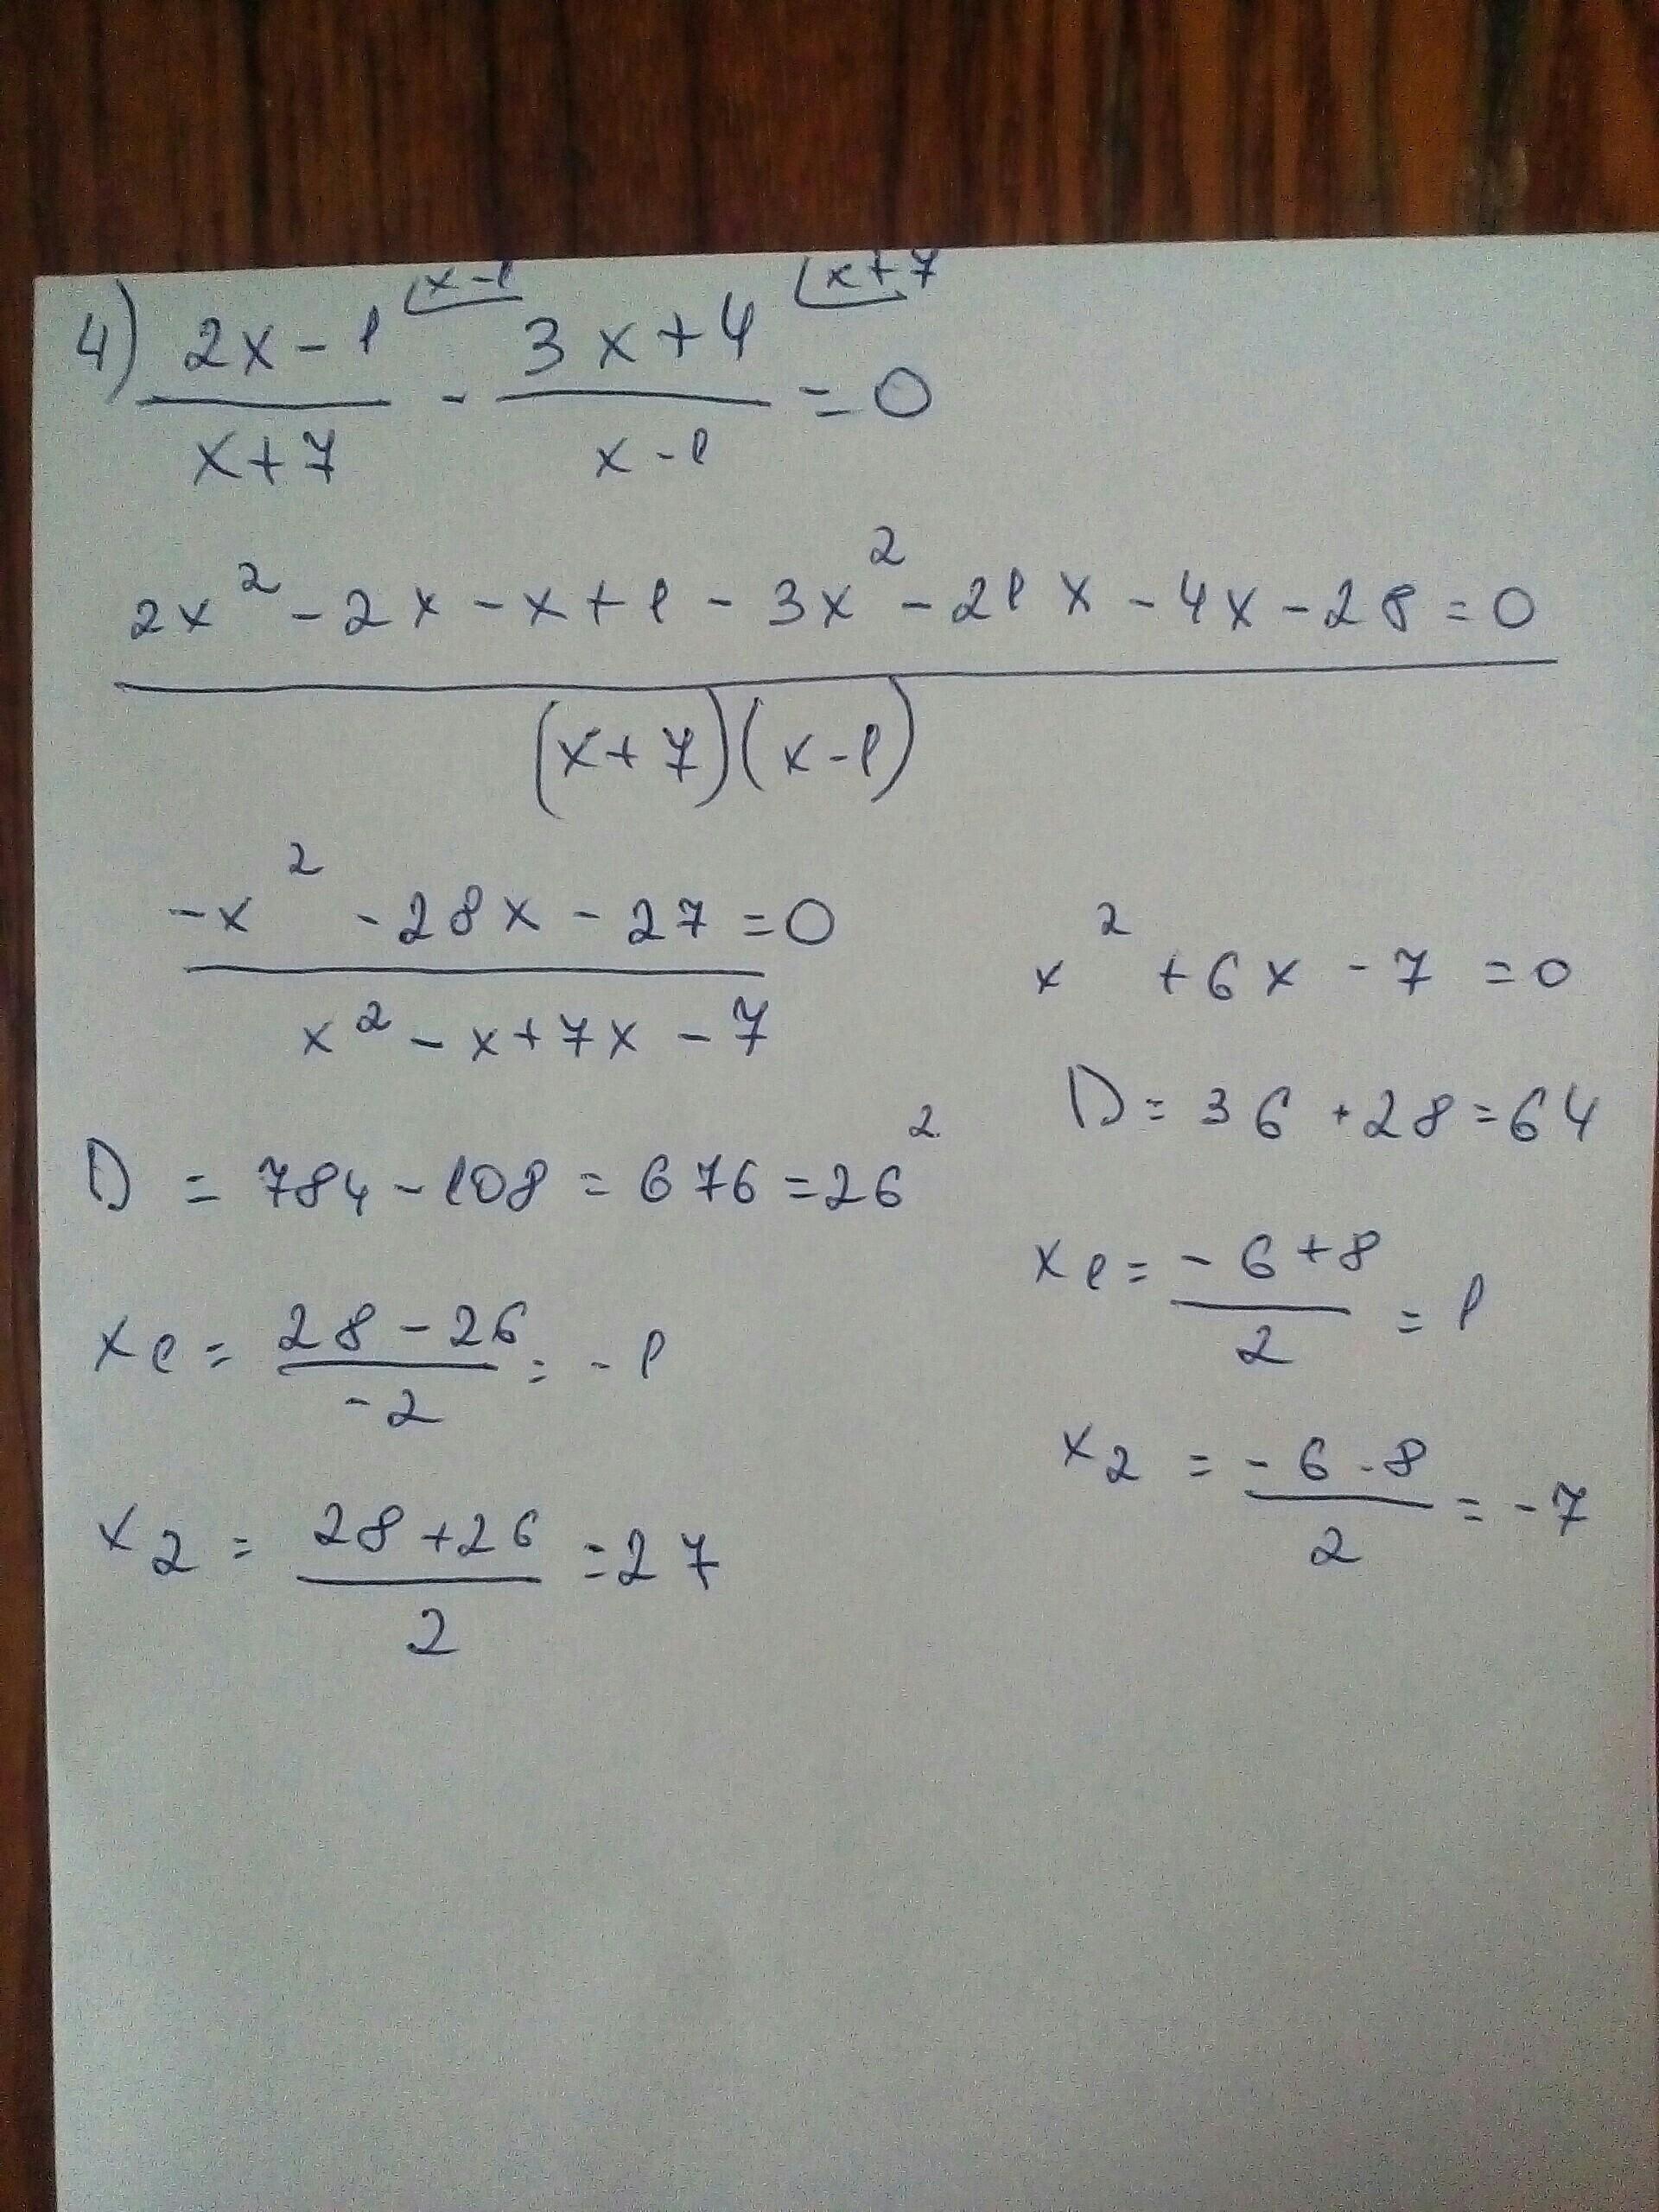 4) (2x-1)/(x+7) ⌊x-1 - (3x+4)/(x-1) ⌊x+7 = 0
(2x² - 2x - x + 1 - 3x² - 21x - 4x - 28 = 0)/((x+7)(x-1))
(-x² - 28x - 27 = 0)/(x² - x + 7x - 7)
D = 784 - 108 = 676 = 26²
x1 = (28 - 26)/(-2) = -1
x2 = (28 + 26)/2 = 27
x² + 6x - 7 = 0
D = 36 + 28 = 64
x1 = (-6 + 8)/2 = 1
x2 = (-6 - 8)/2 = -7